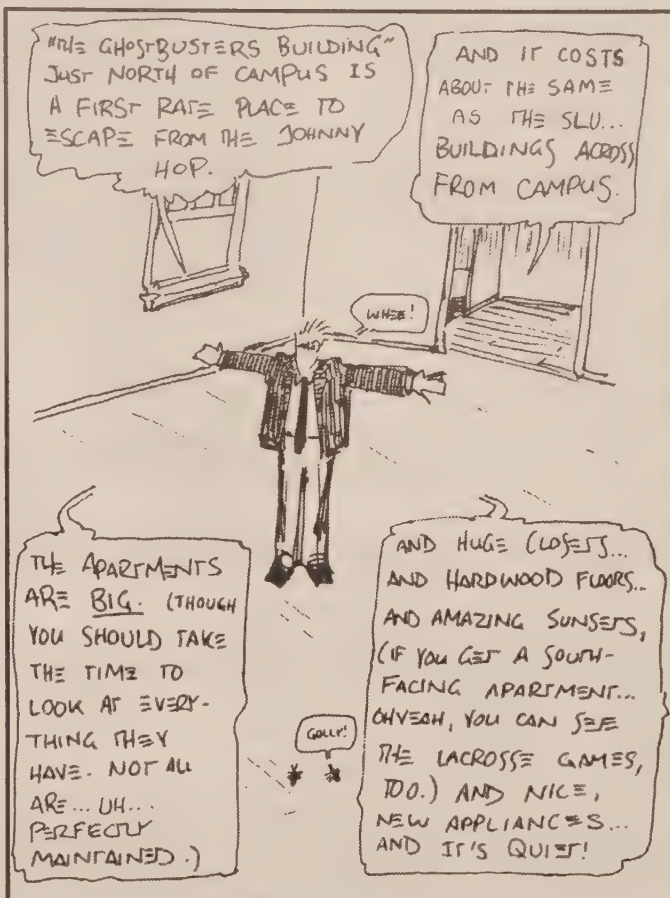 "THE GHOSTBUSTERS BUILDING"
JUST NORTH OF CAMPUS IS
A FIRST RATE PLACE TO
ESCAPE FROM THE JOHNNY
HOP.
AND IT COSTS
ABOUT THE SAME
AS THE SLU...
BUILDINGS ACROSS
FROM CAMPUS.
WHEE!
THE APARTMENTS
ARE BIG. (THOUGH
YOU SHOULD TAKE
THE TIME TO
LOOK AT EVERY-
THING THEY
HAVE. NOT ALL
ARE... UH...
PERFECTLY
MAINTAINED.)
GOLLY!
AND HUGE CLOSETS...
AND HARDWOOD FLOORS...
AND AMAZING SUNSETS,
(IF YOU GET A SOUTH-
FACING APARTMENT...
OHYEAH, YOU CAN SEE
THE LACROSSE GAMES,
TOO.) AND NICE,
NEW APPLIANCES...
AND IT'S QUIET!